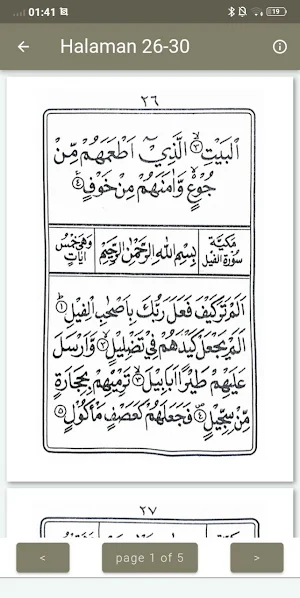 01:41
19
Halaman 26-30
٢٦
الْبَيْتِ ۙ٣ الَّذِيْٓ اَطْعَمَهُمْ مِّنْ
جُوْعٍ وَّاٰمَنَهُمْ مِنْ خَوْفٍ ٤
مَكِيَّة سُوْرَةُ الْفِيْل
بِسْمِ اللهِ الرَّحْمٰنِ الرَّحِيْمِ
وَهِيَ خَمْسُ اٰيَاتٍ
اَلَمْ تَرَ كَيْفَ فَعَلَ رَبُّكَ بِاَصْحٰبِ الْفِيْلِ ١
اَلَمْ يَجْعَلْ كَيْدَهُمْ فِيْ تَضْلِيْلٍ ۙ٢ وَاَرْسَلَ
عَلَيْهِمْ طَيْرًا اَبَابِيْلَ ۙ٣ تَرْمِيْهِمْ بِحِجَارَةٍ
مِّنْ سِجِّيْلٍ ٤ فَجَعَلَهُمْ كَعَصْفٍ مَّأْكُوْلٍ ٥
٢٧
<
page 1 of 5
>